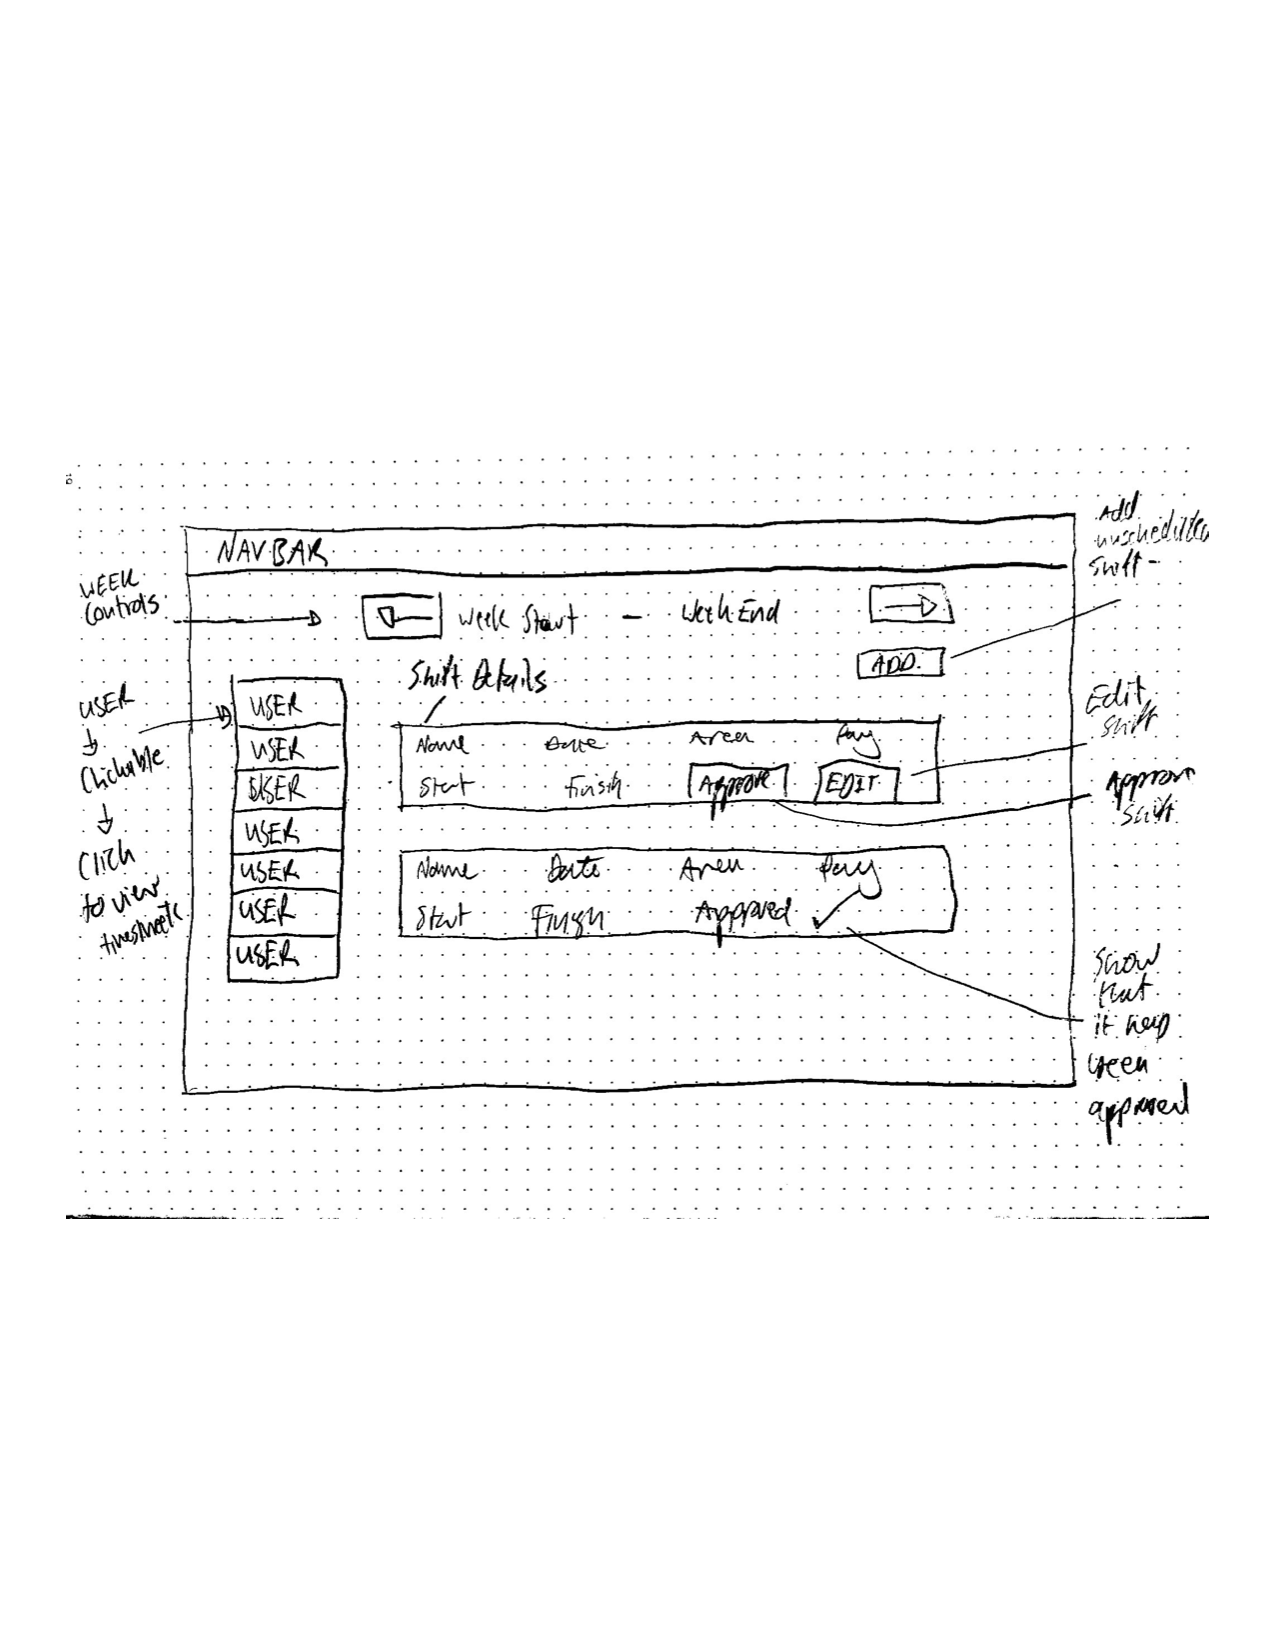 NAVBAR
WEEK
Controls
Week Start - Week End
ADD
Add
unscheduled
shift -
Shift Details
USER
↓
Clickable
↓
Click
to view
timesheets
USER
USER
USER
USER
USER
USER
USER
Name Date Area Pay
Start Finish Approve EDIT
Edit
shift
Approve
shift
Name Date Area Pay
Start Finish Approved ✓
Show
that
it
been
approved